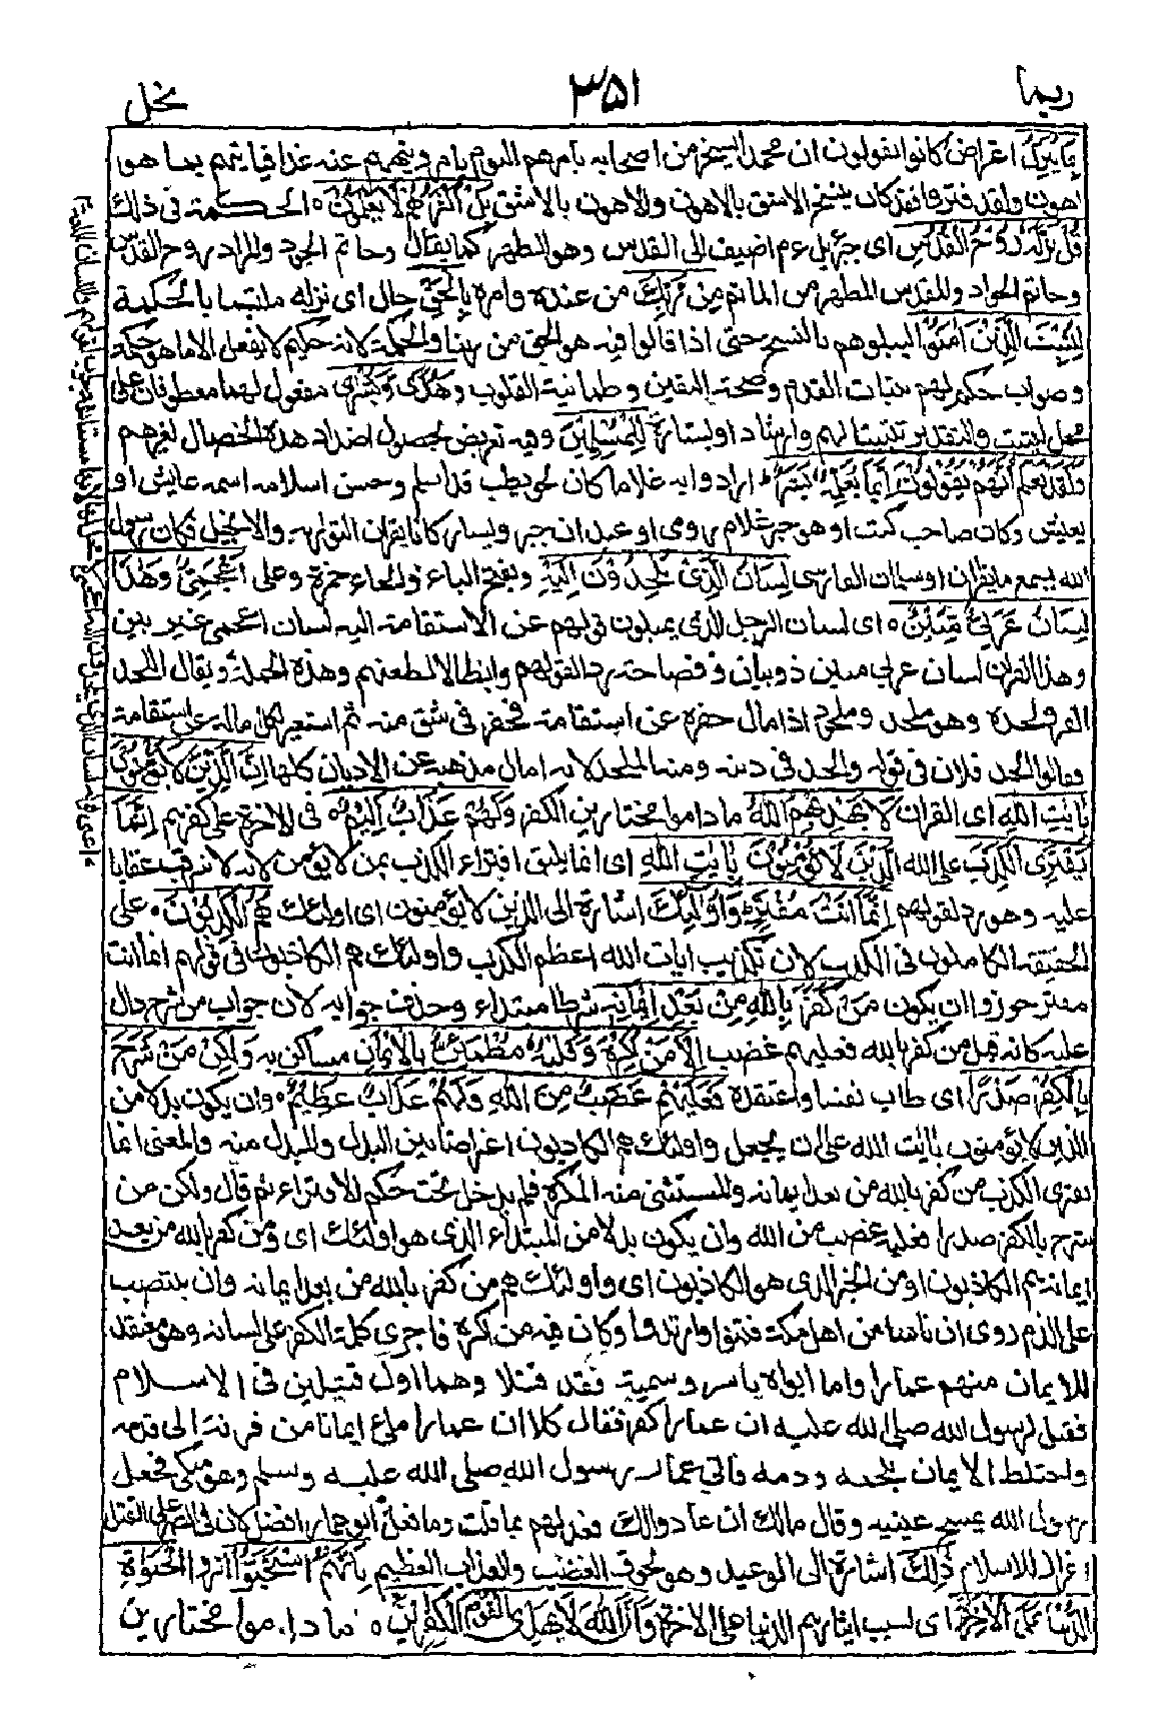 ربما
٣٥١
نخل
بما ينزل اعتراض كانوا يقولون ان محمدا يسخر من اصحابه يامرهم اليوم بامر وينهيهم عنه غدا فياتيهم بما هو
اهون ولقد افتروا فقد كان ينسخ الاشق بالاهون والاهون بالاشق بل اكثرهم لا يعلمون الحكمة في ذلك
قل نزله روح القدس اى جبرئيل ءم اضيف الى القدس وهو الطهر كما يقال وحاتم الجود والمراد روح القدس
وحاتم الجواد والمقدس المطهر من الماثم من ربك من عنده وامره بالحق حال اى نزله ملتبسا بالحكمة
ليثبت الذين امنوا ليبلوهم بالنسخ حتى اذا قالوا فيه هو الحق من ربنا والحكمة لانه حكيم لا يفعل الا ما هو حكمة
وصواب حكم لهم بثبات القدم وصحة اليقين وطمانية القلوب وهدى وبشرى مفعول لهما معطوفان على
محل ليثبت والتقدير تثبيتا لهم وارشادا وبشارة للمسلمين وفيه تعريض بحصول اضداد هذه الخصال لغيرهم
ولقد نعلم انهم يقولون انما يعلمه بشر ارادوا به غلاما كان لحويطب قد اسلم وحسن اسلامه اسمه عايش او
يعيش وكان صاحب كتب او هو جبر غلام رومى او عبدان جبر ويسار كانا يقران التورية والانجيل فكان رسول
الله يسمع ما يقران او سلمان الفارسى لسان الذى يلحدون اليه وبفتح الياء والحاء حمزة وعلى اعجمى وهذا
لسان عربى مبين اى لسان الرجل الذى يميلون قولهم عن الاستقامة اليه لسان اعجمى غير بين
وهذا القران لسان عربى مبين ذو بيان وفصاحة رد القولهم وابطالا لطعنهم وهذه الجملة ويقال الحد
القبر ولحده وهو ملحد وملحود اذا مال حفره عن استقامة فحفر في شق منه ثم استعير لكل امالة عن استقامة
فقالوا الحد فلان في قوله والحد في دينه ومنه الملحد لانه امال مذهبه عن الاديان كلها ان الذين لا يؤمنون
بايت الله اى القران لا يهديهم الله ما داموا مختارين الكفر ولهم عذاب اليم في الاخرة على كفرهم انما
يفترى الكذب على الله الذين لا يؤمنون بايت الله اى انما يليق افتراء الكذب بمن لا يؤمن لانه لا يترقب عقابا
عليه وهو رد لقولهم انما انت مفتر واولئك اشارة الى الذين لا يؤمنون اى اولئك هم الكذبون على
الحقيقة الكاملون في الكذب لان تكذيب ايات الله اعظم الكذب واولئك هم الكاذبون في قولهم انما انت
مفتر جوزوا ان يكون من كفر بالله من بعد ايمانه شرطا مبتداء وحذف جوابه لان جواب من شرح دال
عليه كانه قيل من كفر بالله فعليهم غضب الا من اكره وقلبه مطمئن بالايمان مساكن به ولكن من شرح
بالكفر صدرا اى طاب نفسا واعتقده فعليهم غضب من الله ولهم عذاب عظيم وان يكون بدلا من
الذين لا يؤمنون بايت الله على ان يجعل واولئك هم الكاذبون اعتراضا بين البدل والمبدل منه والمعنى انما
يفترى الكذب من كفر بالله من بعد ايمانه والمستثنى منه المكره فلم يدخل تحت حكم الافتراء ثم قال ولكن من
شرح بالكفر صدرا فعليه غضب من الله وان يكون بدلا من المبتداء الذى هو اولئك اى ومن كفر بالله من بعد
ايمانه هم الكاذبون او من الخبر الذى هو الكاذبون اى واولئك هم من كفر بالله من بعد ايمانه وان ينتصب
على الذم روى ان ناسا من اهل مكة فتنوا وارتدوا وكان فيه من اكره فاجرى كلمة الكفر على لسانه وهو معتقد
للايمان منهم عمار واما ابواه ياسر وسمية فقد قتلا وهما اول قتيلين في الاسلام
فقيل لرسول الله صلى الله عليه ان عمارا كفر فقال كلا ان عمارا ملئ ايمانا من قرنه الى قدمه
واختلط الايمان بلحمه ودمه فاتى عمار رسول الله صلى الله عليه وسلم وهو يبكى فجعل
رسول الله يمسح عينيه وقال مالك ان عادوا لك فعد لهم بما قلت وما فعل ابو عمار افضل لان في الصبر على القتل
اعزاز الاسلام ذلك اشارة الى الوعيد وهو لحوق الغضب والعذاب العظيم بانهم استحبوا اثروا الحيوة
الدنيا على الاخرة اى بسبب ايثارهم الدنيا على الاخرة وان الله لا يهدى القوم الكفرين ما داموا مختارين